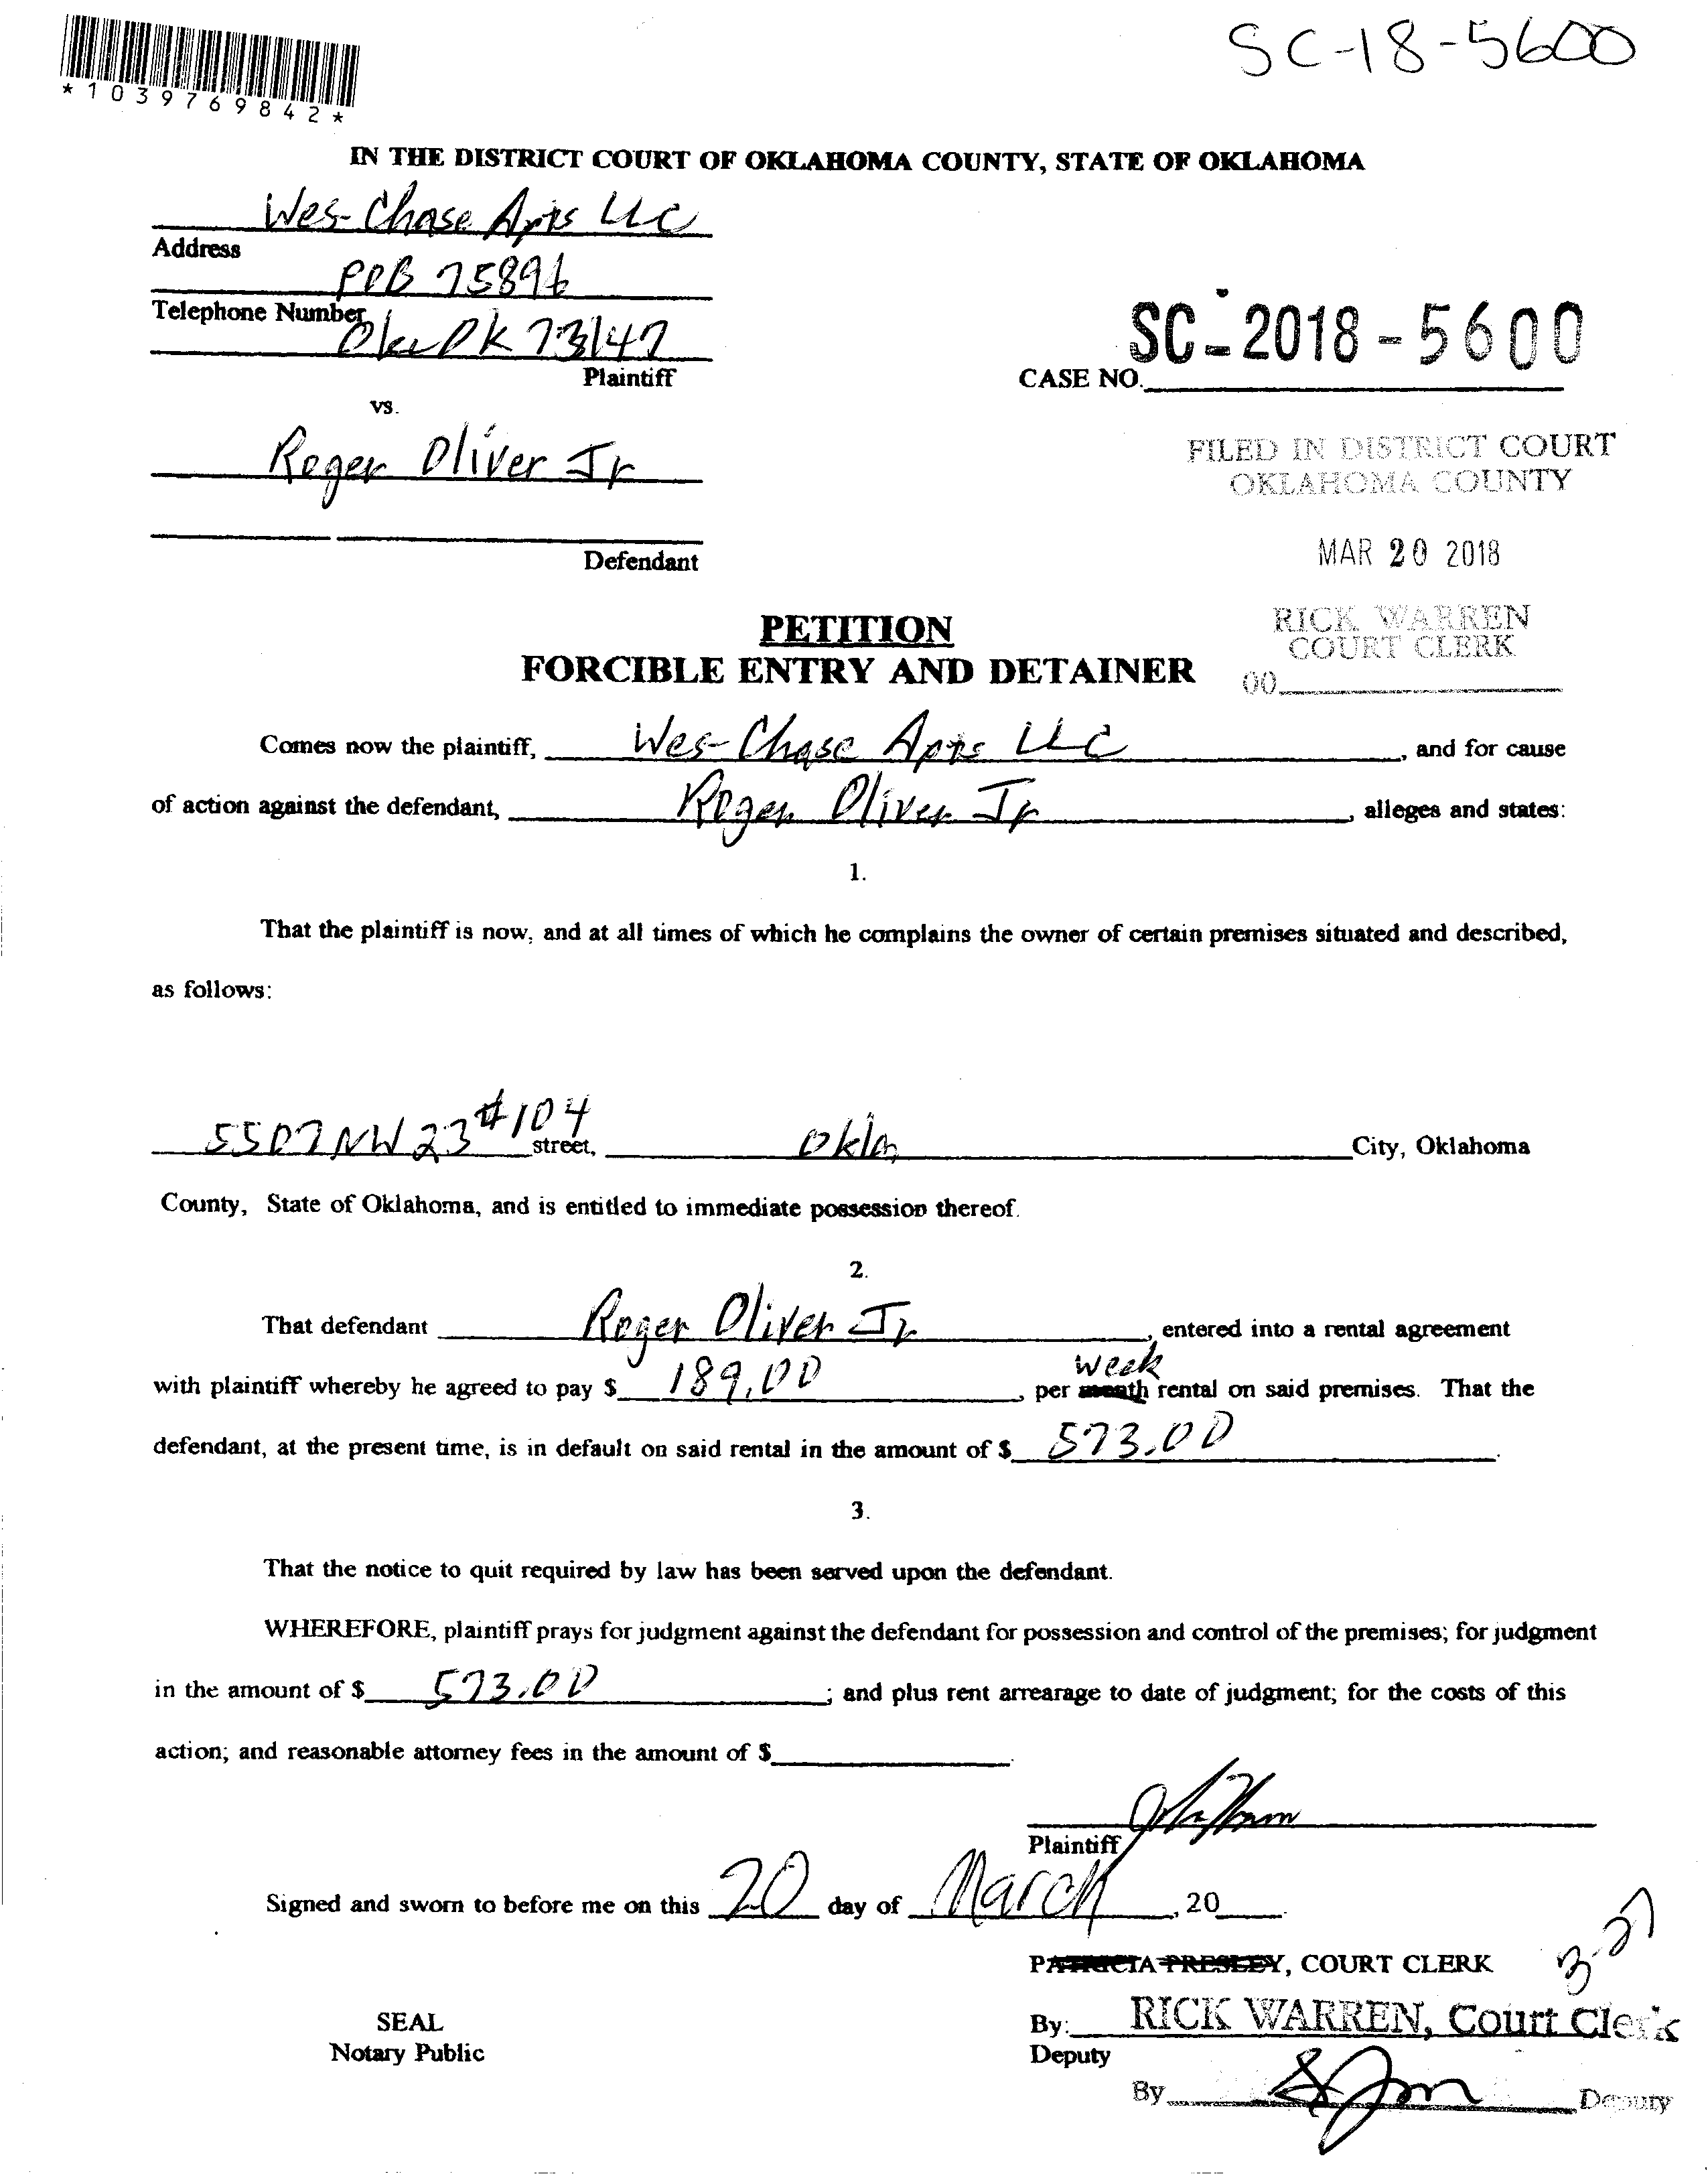 SC-18-5600
*1039769842*
IN THE DISTRICT COURT OF OKLAHOMA COUNTY, STATE OF OKLAHOMA
Wes-Chase Apts LLC
Address
POB 75896
Telephone Number
Okc OK 73147
Plaintiff
SC-2018-5600
CASE NO.
vs.
Roger Oliver Jr
FILED IN DISTRICT COURT
OKLAHOMA COUNTY
Defendant
MAR 20 2018
PETITION
RICK WARREN
COURT CLERK
FORCIBLE ENTRY AND DETAINER
00
Comes now the plaintiff, Wes-Chase Apts LLC, and for cause
of action against the defendant, Roger Oliver Jr, alleges and states:
1.
That the plaintiff is now, and at all times of which he complains the owner of certain premises situated and described,
as follows:
5507 NW 23 #104 street, Okla City, Oklahoma
County, State of Oklahoma, and is entitled to immediate possession thereof.
2.
That defendant Roger Oliver Jr, entered into a rental agreement
with plaintiff whereby he agreed to pay $ 189.00, per month week rental on said premises. That the
defendant, at the present time, is in default on said rental in the amount of $ 573.00.
3.
That the notice to quit required by law has been served upon the defendant.
WHEREFORE, plaintiff prays for judgment against the defendant for possession and control of the premises; for judgment
in the amount of $ 573.00; and plus rent arrearage to date of judgment; for the costs of this
action; and reasonable attorney fees in the amount of $.
Plaintiff
Signed and sworn to before me on this 20 day of March, 20.
3-27
PATRICIA PRESLEY, COURT CLERK
SEAL
By: RICK WARREN, Court Clerk
Notary Public
Deputy
By Deputy